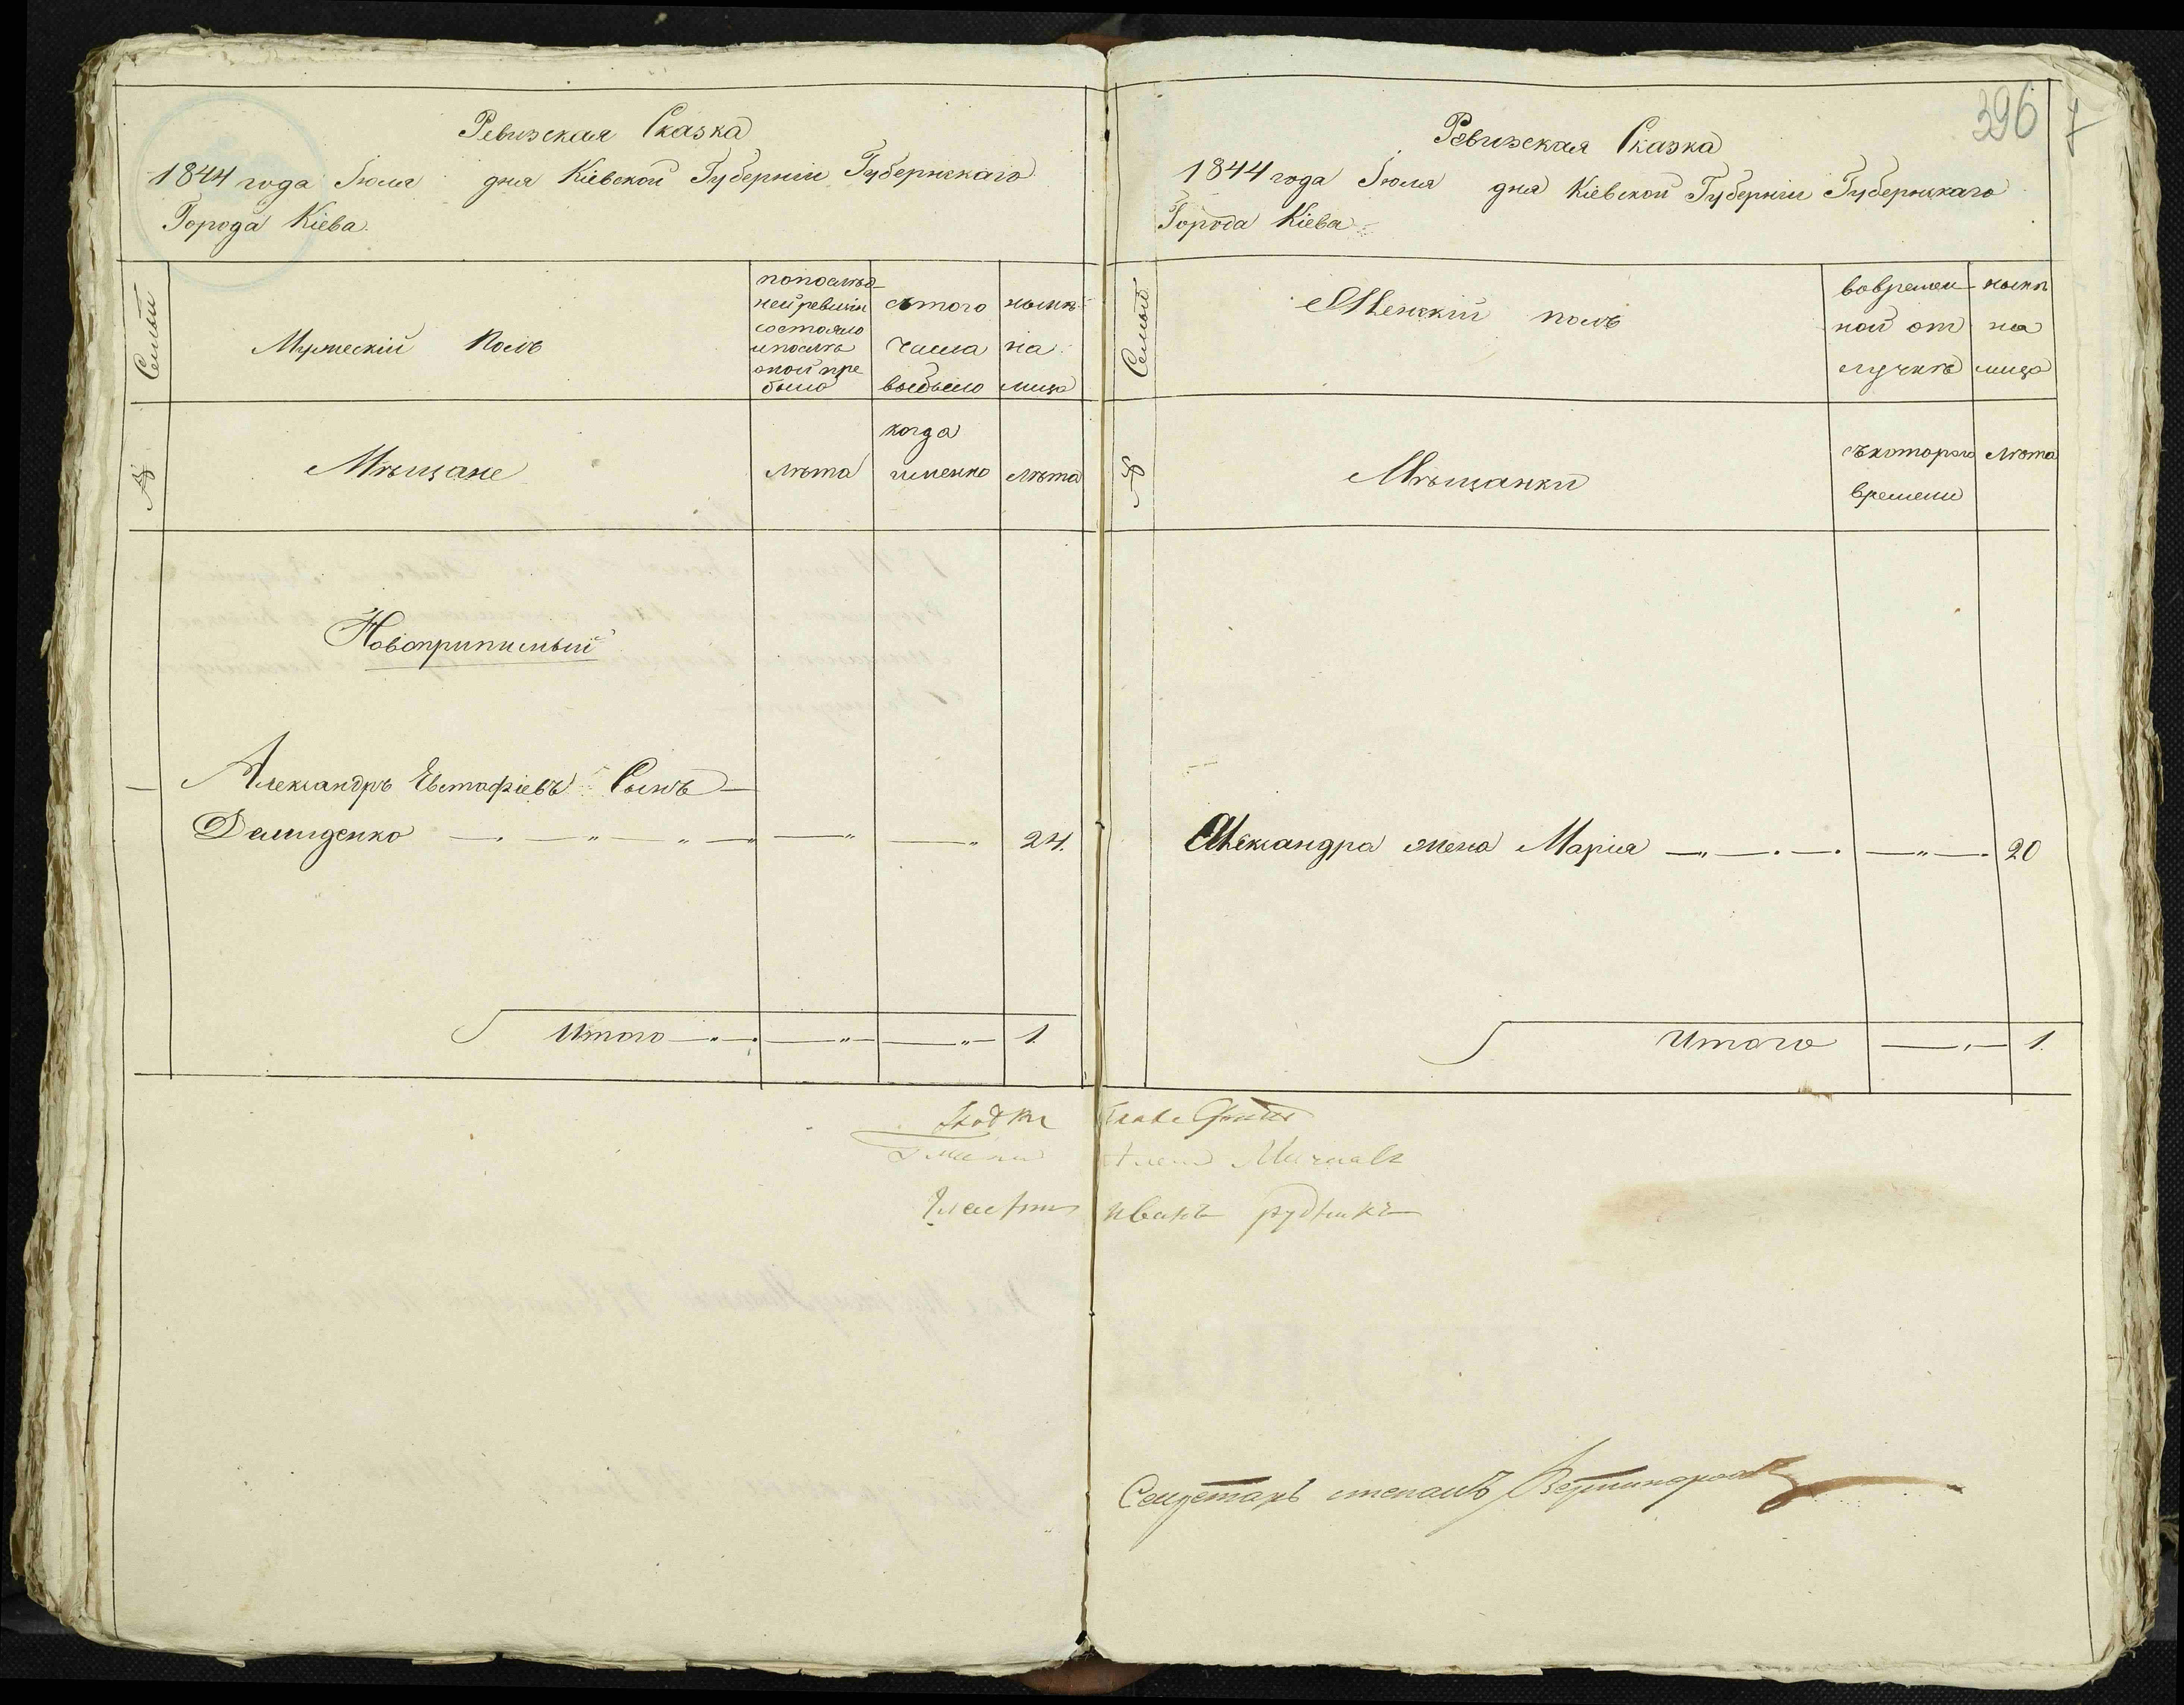 Ревизская Сказка
1844 года Іюля дня Кіевской Губерніи Губернскаго
Города Кіева
Семьи
Мужескій Полъ
попослѣд
ней ревизіи
состояло
ипослѣ
оной при
было
сътого
числа
выбыло
нынѣ
на
лицо
№
Мѣщане
лѣта
когда
именно
лѣта
Новоприписный
Александръ Евстафіевъ Сынъ —
Демиденко — „ — „ — „ — „ — „ 24.
Итого — „ — „ — „ — 1.
396 7
Ревизская Сказка
1844 года Іюля дня Кіевской Губерніи Губернскаго
Города Кіева
Семьи
Женскій полъ
вовремен
ной от
лучкѣ
нынѣ
на
лицо
№
Мѣщанки
съкотораго
времени
лѣта
Александра жена Марія — „ — . — . — „ — . 20
Итого — „ — 1.
Гласный иванъ рудникъ
Секретарь степанъ